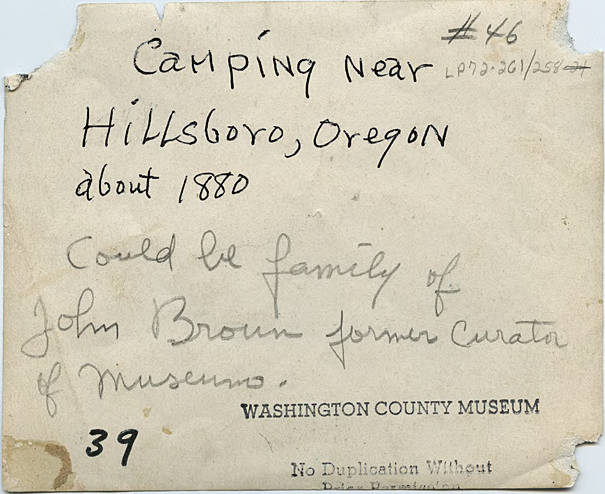 #46
Camping Near
LP72.261/258-21
Hillsboro, Oregon
about 1880
Could be family of
John Brown former Curator
of Museum.
WASHINGTON COUNTY MUSEUM
39
No Duplication Without
Prior Permission